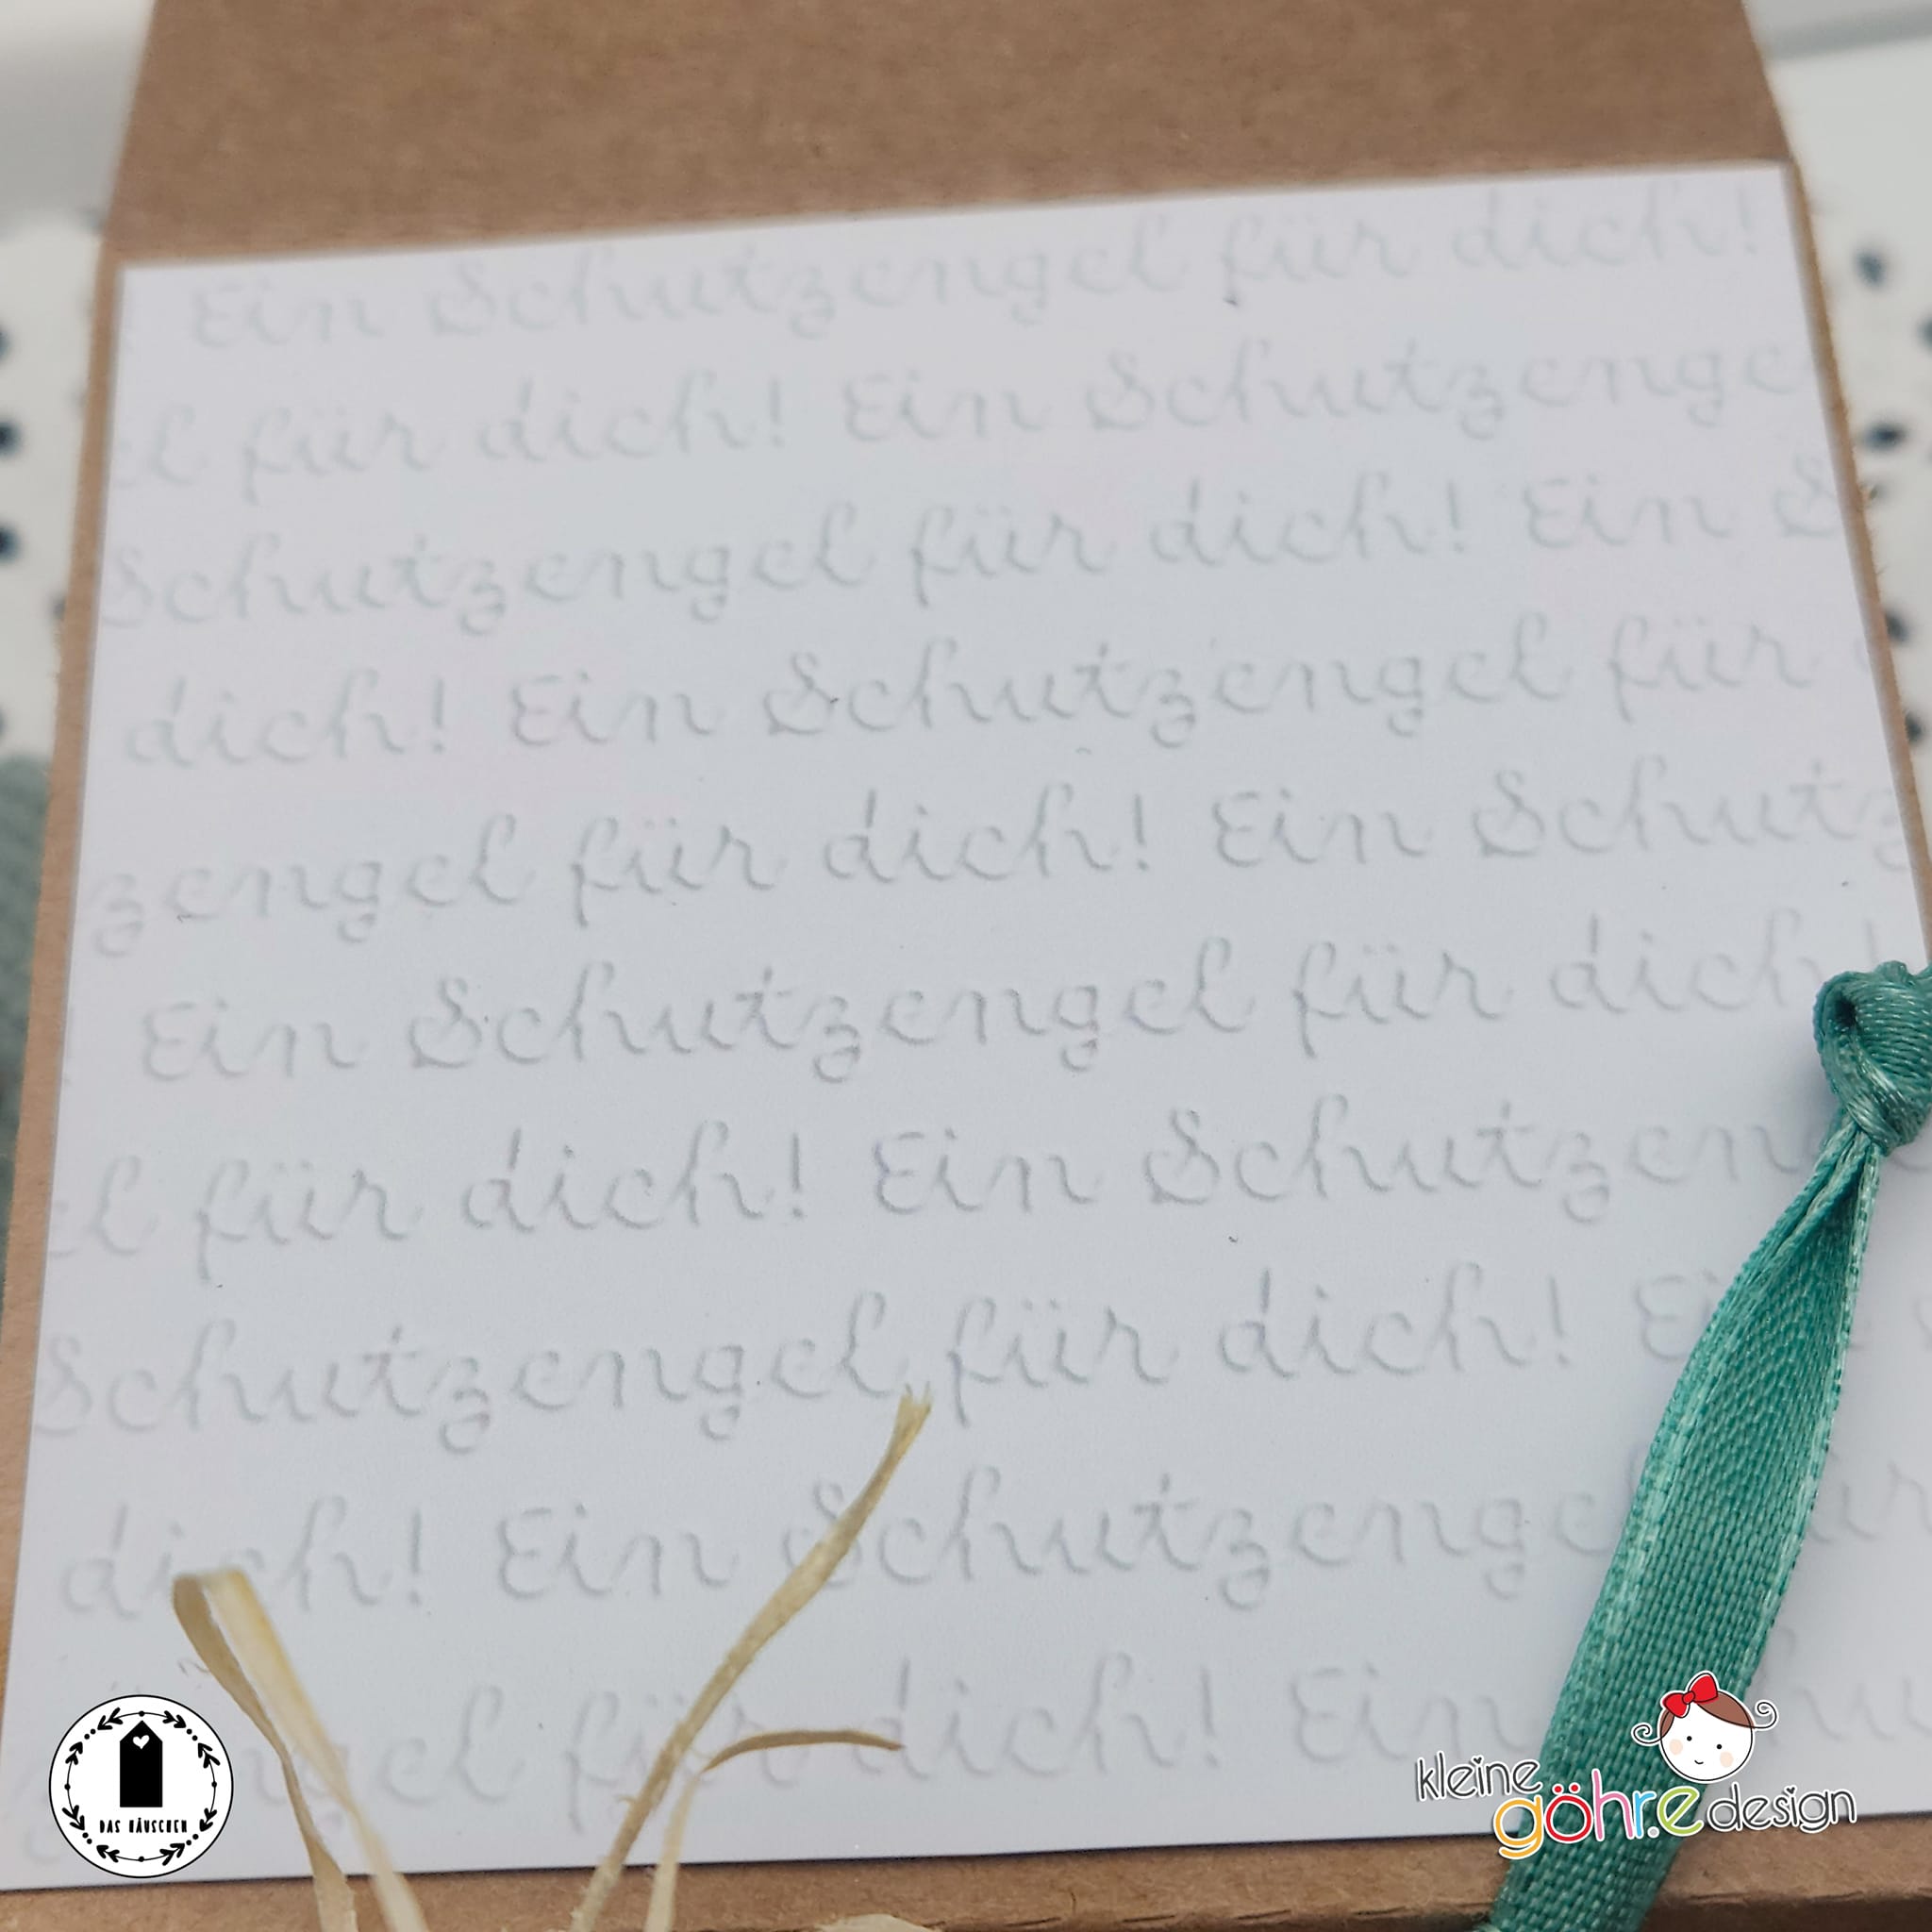 Ein Schutzengel für dich!
el für dich! Ein Schutzenge
Schutzengel für dich! Ein S
dich! Ein Schutzengel für
zengel für dich! Ein Schutz
Ein Schutzengel für dich!
el für dich! Ein Schutzen
Schutzengel für dich! Ei
dich! Ein Schutzengel für
ngel für dich! Ein Schu
DAS HÄUSCHEN
kleine
göhr.e design